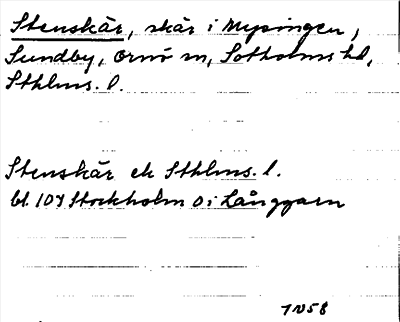 Stenskär, skär i Mysingen,
Sundby, Ornö sn, Sotholms hd,
Sthlms. l.
Stenskär ek Sthlms. l.
bl. 107 Stockholm O i Långgarn
7N58